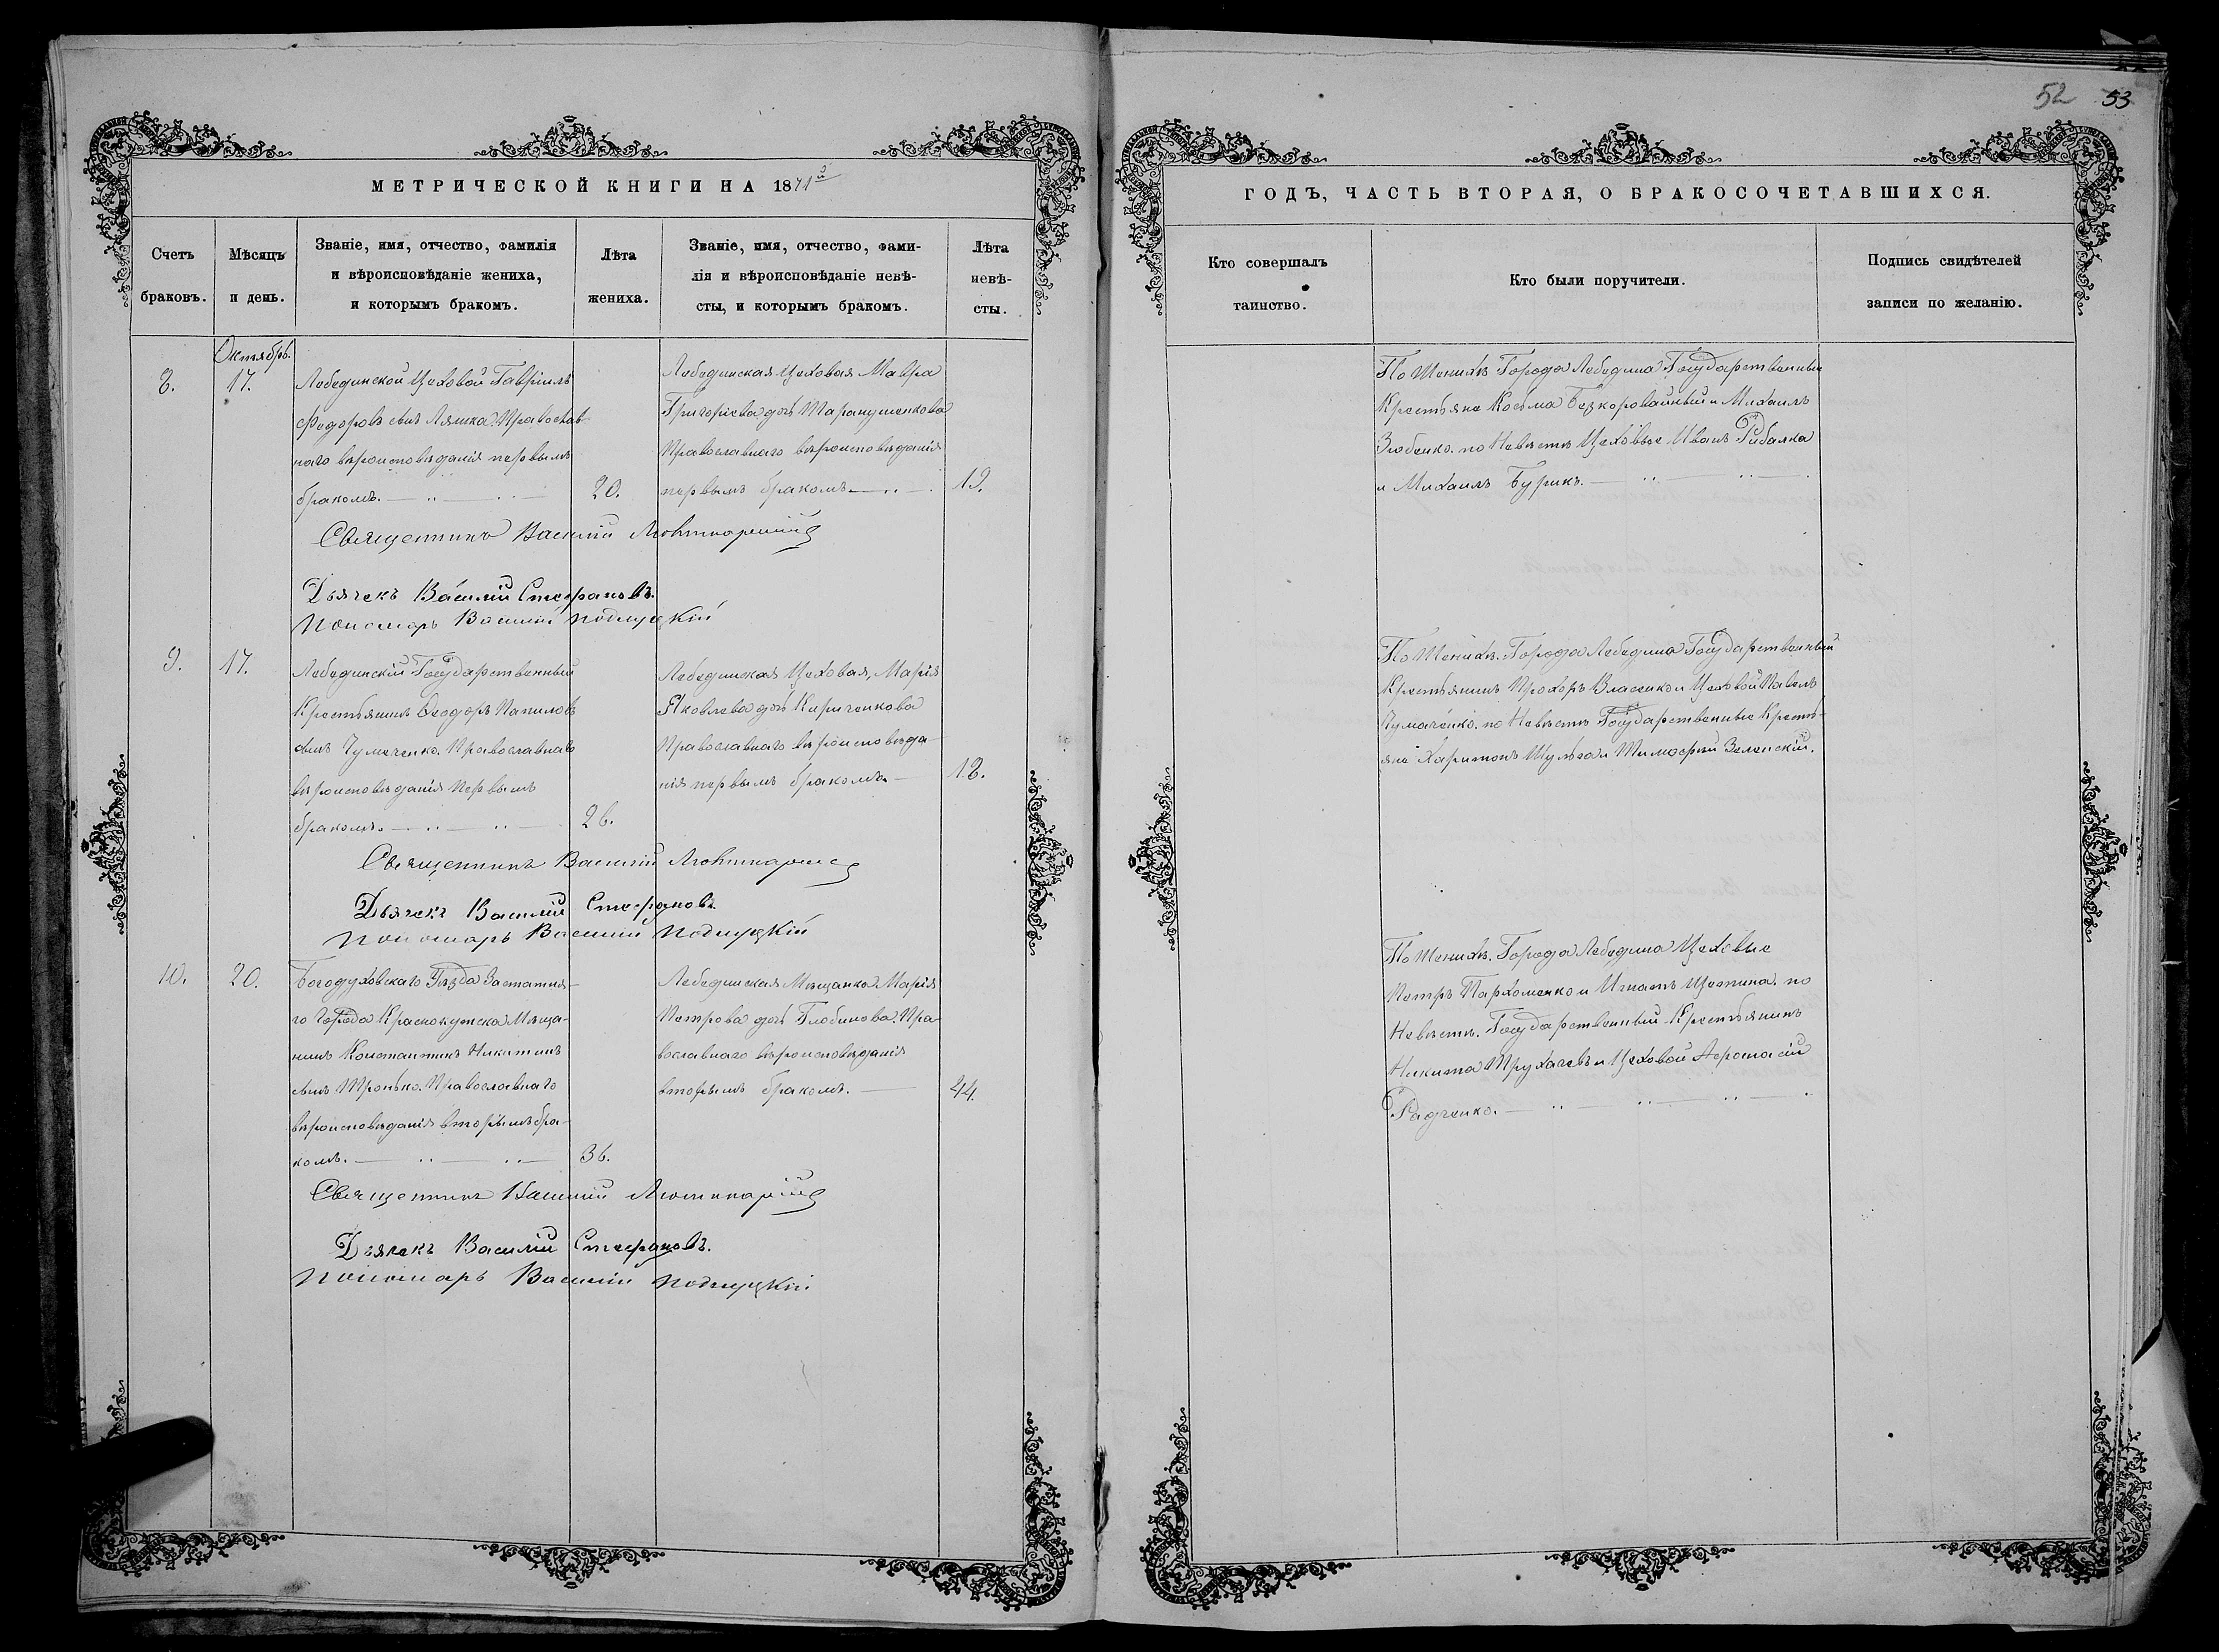 52 53
МЕТРИЧЕСКОЙ КНИГИ НА 1871й
Счетъ браковъ.
Мѣсяцъ и день.
Званіе, имя, отчество, фамилія
и вѣроисповѣданіе жениха,
и которымъ бракомъ.
Лѣта жениха.
Званіе, имя, отчество, фами-
лія и вѣроисповѣданіе невѣ-
сты, и которымъ бракомъ.
Лѣта невѣ-
сты.
Октябрь.
8. 17.
Лебединской Цеховой Гавріилъ
Федоровъ сынъ Ляшка. Православ-
наго вѣроисповѣданія первымъ
бракомъ.
20.
Лебединская Цеховая Мавра
Григоріева дочь Таранушенкова
Православнаго вѣроисповѣданія
первымъ бракомъ
19.
Священникъ Василій
Дьячекъ Василій Стефановъ.
Пономарь Василій Подлуцкій
9. 17.
Лебединскій Государственный
Крестьянинъ Ѳеодоръ
сынъ Чумаченко. Православнаго
вѣроисповѣданія первымъ
бракомъ.
26.
Лебединская Цеховая, Марія
Яковлева дочь Кириченкова
Православнаго вѣроисповѣда-
нія первымъ бракомъ
18.
Священникъ Василій
Дьячекъ Василій Стефановъ.
Пономарь Василій Подлуцкій
10. 20.
Богодуховскаго Уѣзда Заштатна-
го Города Краснокутска Мѣща-
нинъ Константинъ Никитинъ
сынъ Тронько. Православнаго
вѣроисповѣданія вторымъ бра-
комъ.
36.
Лебединская Мѣщанка Марія
Петрова дочь Глобинова. Пра-
вославнаго вѣроисповѣданія
вторымъ бракомъ.
44.
Священникъ Василій
Дьячекъ Василій Стефановъ.
Пономарь Василій Подлуцкій
ГОДЪ, ЧАСТЬ ВТОРАЯ, О БРАКОСОЧЕТАВШИХСЯ.
Кто совершалъ
таинство.
Кто были поручители.
Подпись свидѣтелей
записи по желанію.
По Женихѣ Города Лебедина Государственные
Крестьяне Косьма Безкоровайный и Михаилъ
Зюбенко. по Невѣстѣ Цеховые Иванъ Рибалка
и Михаилъ Бурикъ.
По Женихѣ. Города Лебедина Государственный
Крестьянинъ Прохоръ Власенко и Цеховой Павелъ
Чумаченко. по Невѣстѣ Государственные Кресть-
яне Харитонъ Шульга и Тимофей Зеленскій.
По Женихѣ. Города Лебедина Цеховые
Петръ Пархоменко и Игнатъ Щетина. по
Невѣстѣ. Государственный Крестьянинъ
Никита Трухачевъ и Цеховой Афонасій
Радченко.